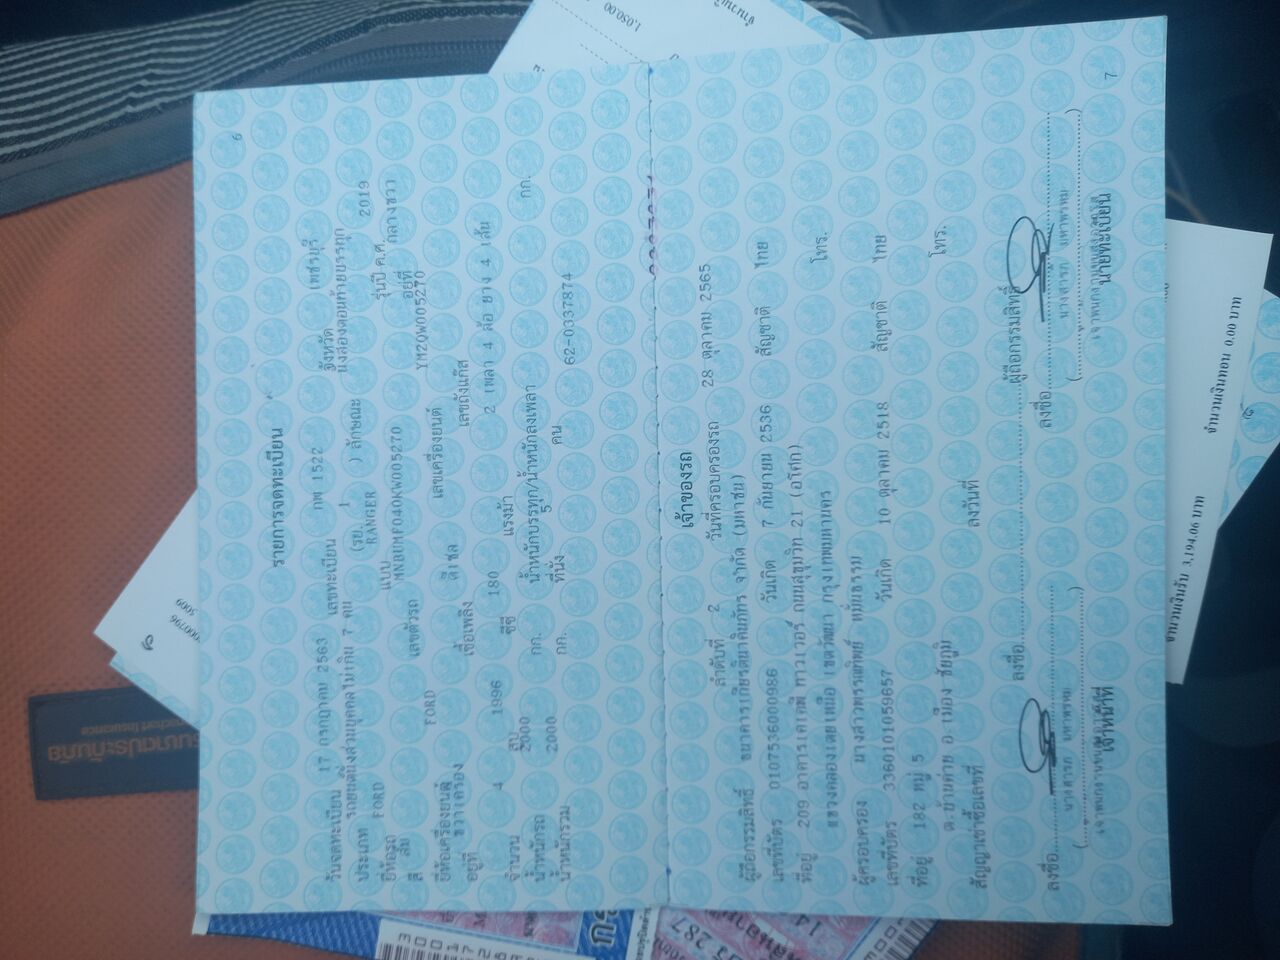 6
รายการจดทะเบียน
วันจดทะเบียน 17 กรกฎาคม 2563 เลขทะเบียน กพ 1522 จังหวัด เพชรบุรี
ประเภท รถยนต์นั่งส่วนบุคคลไม่เกิน 7 คน (รย. 1 ) ลักษณะ นั่งสองตอนท้ายบรรทุก
ยี่ห้อรถ FORD RANGER รุ่นปี ค.ศ. 2019
สี ส้ม แบบ เลขตัวรถ MNBUMF040KW005270 อยู่ที่ กลางขวา
ยี่ห้อเครื่องยนต์ FORD เลขเครื่องยนต์ YM2QW005270
อยู่ที่ ขวาเครื่อง เชื้อเพลิง ดีเซล เลขถังแก๊ส
จำนวน 4 สูบ 1996 ซีซี 180 แรงม้า 2 เพลา 4 ล้อ ยาง 4 เส้น
น้ำหนักรถ 2000 กก. น้ำหนักบรรทุก/น้ำหนักลงเพลา กก.
น้ำหนักรวม 2000 กก. ที่นั่ง 5 คน 62-0337874
เจ้าของรถ
ลำดับที่ 2 วันที่ครอบครองรถ 28 ตุลาคม 2565
ผู้ถือกรรมสิทธิ์ ธนาคารเกียรตินาคินภัทร จำกัด (มหาชน)
เลขที่บัตร 0107536000986 วันเกิด 7 กันยายน 2536 สัญชาติ ไทย
ที่อยู่ 209 อาคารเคเคพี ทาวเวอร์ ถนนสุขุมวิท 21 (อโศก)
แขวงคลองเตยเหนือ เขตวัฒนา กรุงเทพมหานคร โทร.
ผู้ครอบครอง นางสาวพรรณทิพย์ หมั่นธรรม
เลขที่บัตร 3360101059657 วันเกิด 10 ตุลาคม 2518 สัญชาติ ไทย
ที่อยู่ 182 หมู่ 5
ต.บ้านค่าย อ.เมือง ชัยภูมิ โทร.
สัญญาเช่าซื้อเลขที่ ลงวันที่
ลงชื่อ ผู้ถือกรรมสิทธิ์
ลงชื่อ ลงชื่อ
เจ้าหน้าที่ นายทะเบียน
7
1,050.00
5009
จำนวนเงินรับ 3,194.06 บาท จำนวนเงินทอน 0.00 บาท
287
14